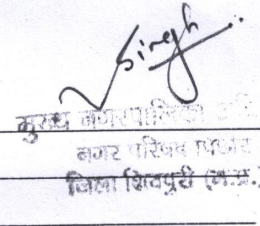 Singh
मुख्य नगरपालिका
नगर परिषद
जिला शिवपुरी (म.प्र.)